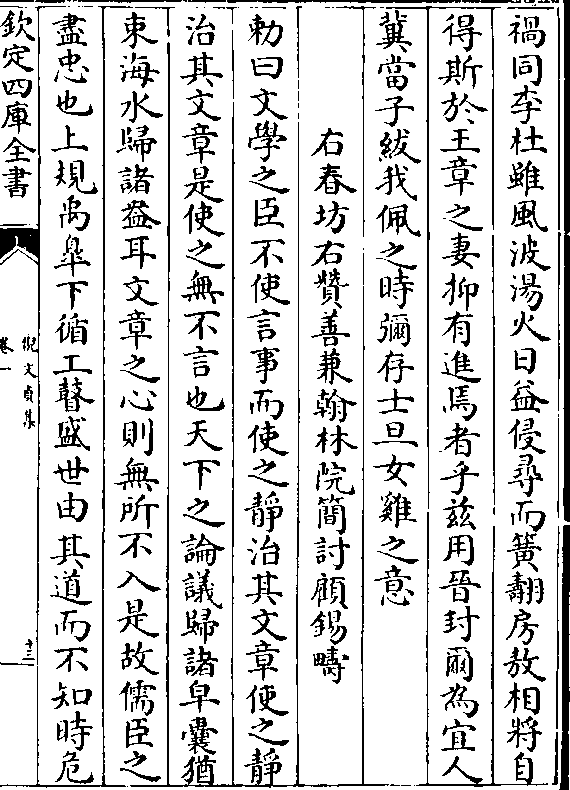 禍同李杜雖風波湯火日益侵尋而簧翿房敖相將自
得斯於王章之妻抑有進焉者乎兹用晉封爾為宜人
冀當子紱我佩之時彌存士旦女雞之意
右春坊右贊善兼翰林院簡討顧錫疇
勅曰文學之臣不使言事而使之靜治其文章使之靜
治其文章是使之無不言也天下之論議歸諸皁囊猶
東海水歸諸盎耳文章之心則無所不入是故儒臣之
盡忠也上規禹臯下循工瞽盛世由其道而不知時危
欽定四庫全書
倪文貞集
卷一
十三